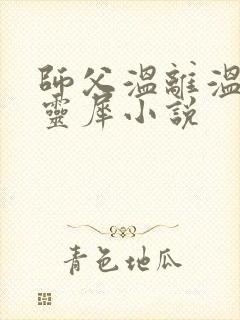 師父溫離溫
靈犀小說
青色地瓜